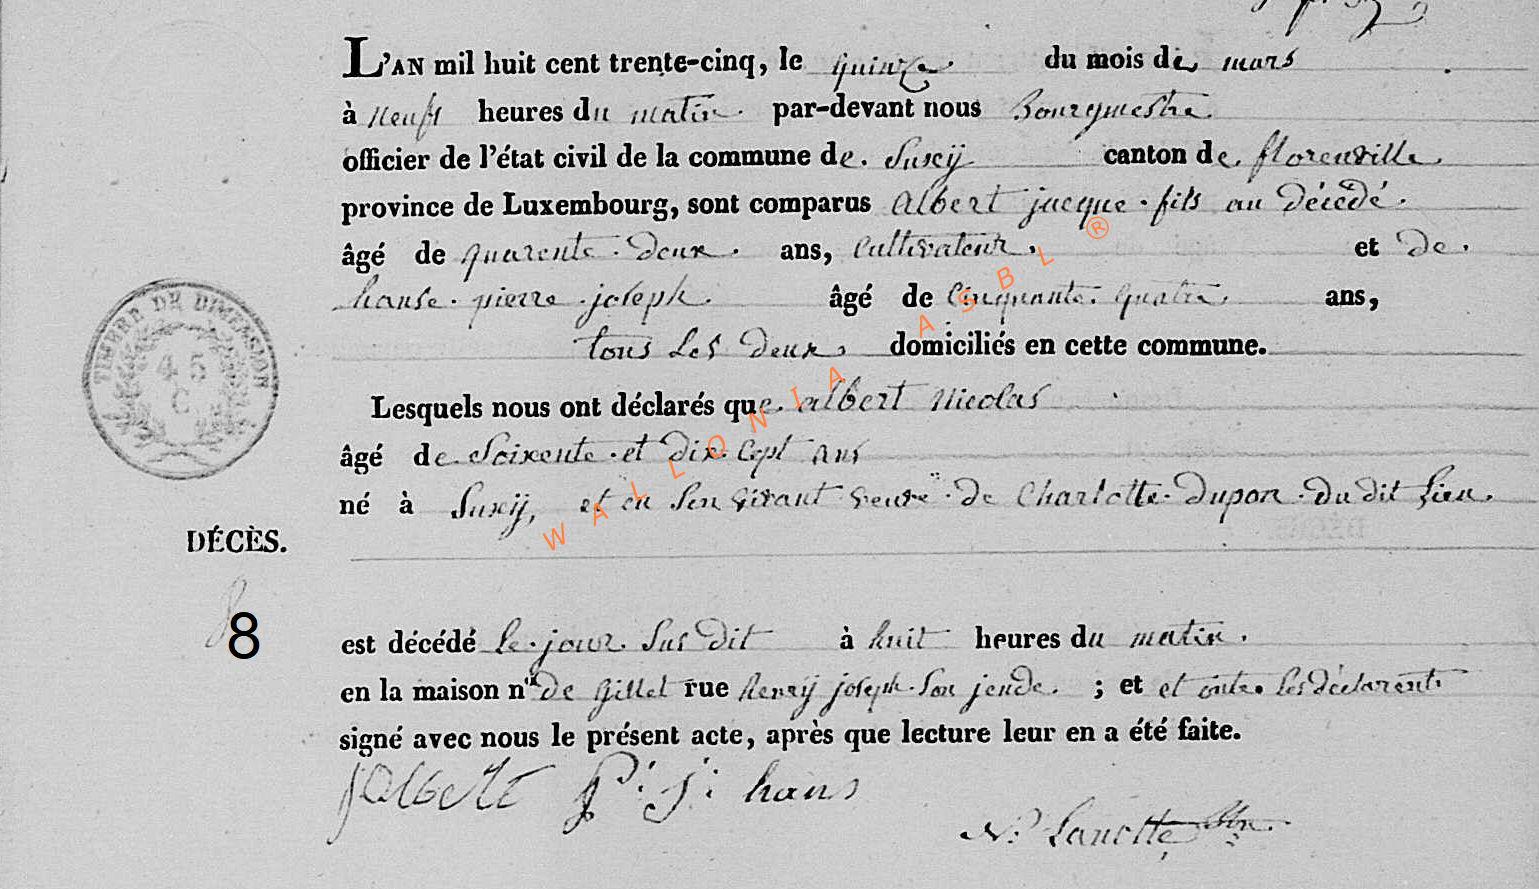 L'AN mil huit cent trente-cinq, le quinze du mois de mars
à neufs heures du matin. par-devant nous Bourgmestre
officier de l'état civil de la commune de. Suxÿ canton de. florenville.
province de Luxembourg, sont comparus Albert jacque. fils au décédé.
âgé de quarente. deux. ans, cultivateur. et de.
hanse. pierre. joseph. âgé de Cinquante. quatre. ans,
tous les deux, domiciliés en cette commune.
Lesquels nous ont déclarés que. albert Nicolas
âgé de Soixente. et dix. Cept ans
né à Suxÿ, et en son vivant veuve. de Charlotte. Dupon. du dit lieu.
DÉCÈS.
8
est décédé le. jour. Sus dit à huit heures du matin.
en la maison n° de Gillet rue Henrÿ joseph. Son jende. ; et et ontes les déclarents
signé avec nous le présent acte, après que lecture leur en a été faite.
jAlbert P. j. hans
N. Lanotte
TIMBRE DE DIMENSION
45
C.
WALLONIA ASBL ®